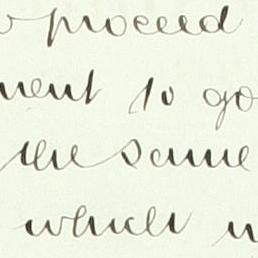 proceed
ment to go
the same
which